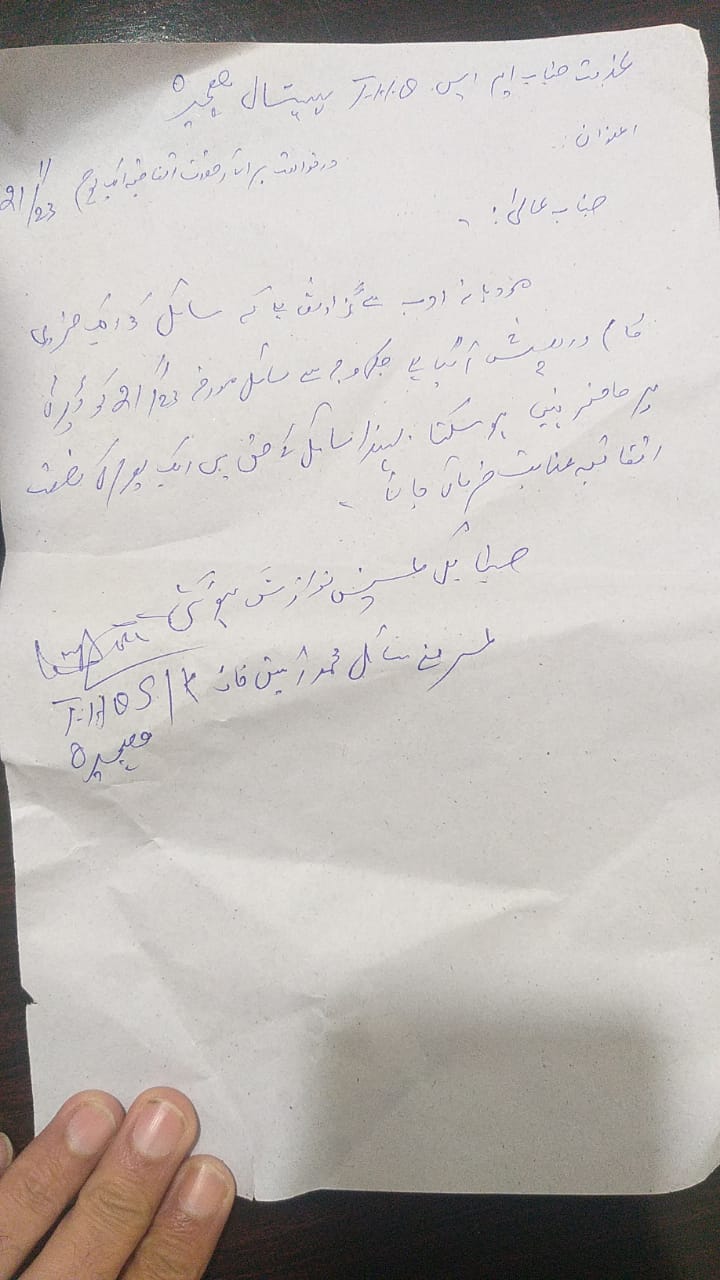 بخدمت جناب ایم ایس T.H.Q ہسپتال ہجیرہ
عنوان:
درخواست برائے رخصت اتفاقیہ ایک یوم 21/11/23
جناب عالی!
مودبانہ ادب سے گزارش ہے کہ سائل کو ایک ضروری
کام درپیش آ گیا ہے جسکی وجہ سے سائل مورخہ 21/11/23 کو ڈیوٹی
پر حاضر نہیں ہو سکتا۔ لہذا سائل کے حق میں ایک یوم کی رخصت
اتفاقیہ عنایت فرمائی جائے۔
عین نوازش ہو گی
سائل محمد خان
T.H.Q
ہجیرہ